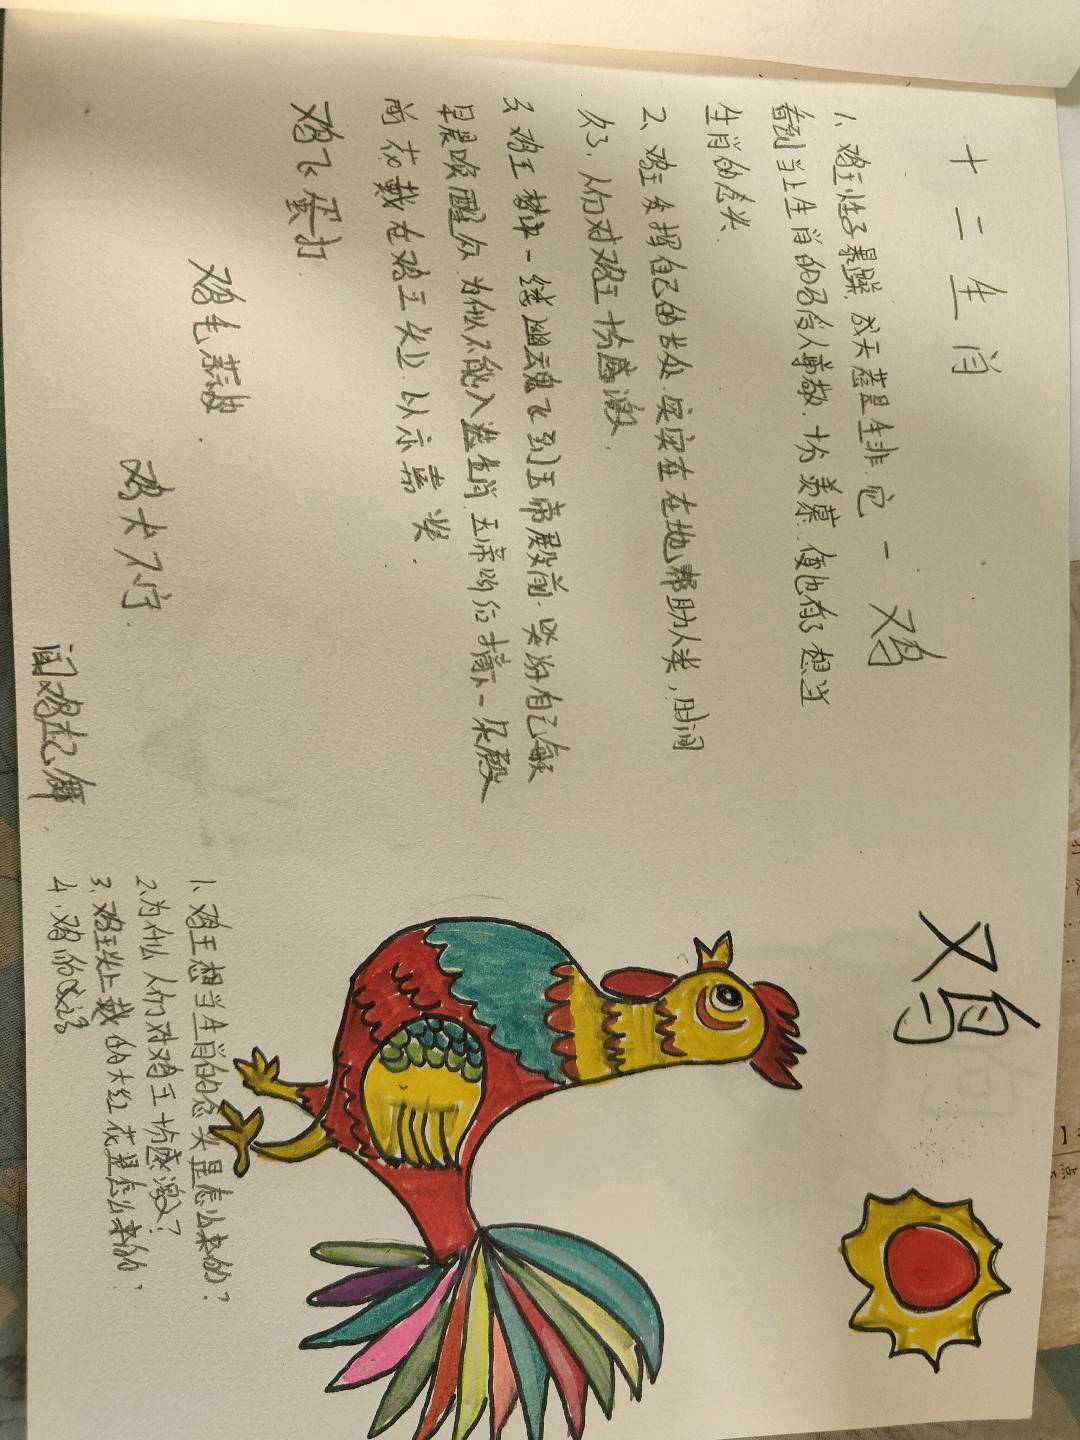 十二生肖 — 鸡
1、鸡王性子暴躁，成天惹是生非，它
看到当上生肖的马受人尊敬，十分羡慕，便也有了想当
生肖的念头.
2、鸡王发挥自己的长处实实在在地帮助人类，时间
久了，人们对鸡王十分感激.
3、鸡王梦中一缕幽魂飞到玉帝殿前，哭诉自己每
早晨唤醒众 为什么不能入选生肖，玉帝听后摘下一朵殿
前花戴在鸡王头上，以示嘉奖.
鸡飞蛋打.
鸡毛蒜皮.
鸡犬不宁.
闻鸡起舞.
鸡
1、鸡王想当生肖的念头是怎么来的？
2、为什么人们对鸡王十分感激？
3、鸡王头上戴的大红花是怎么来的？
4、鸡的成语